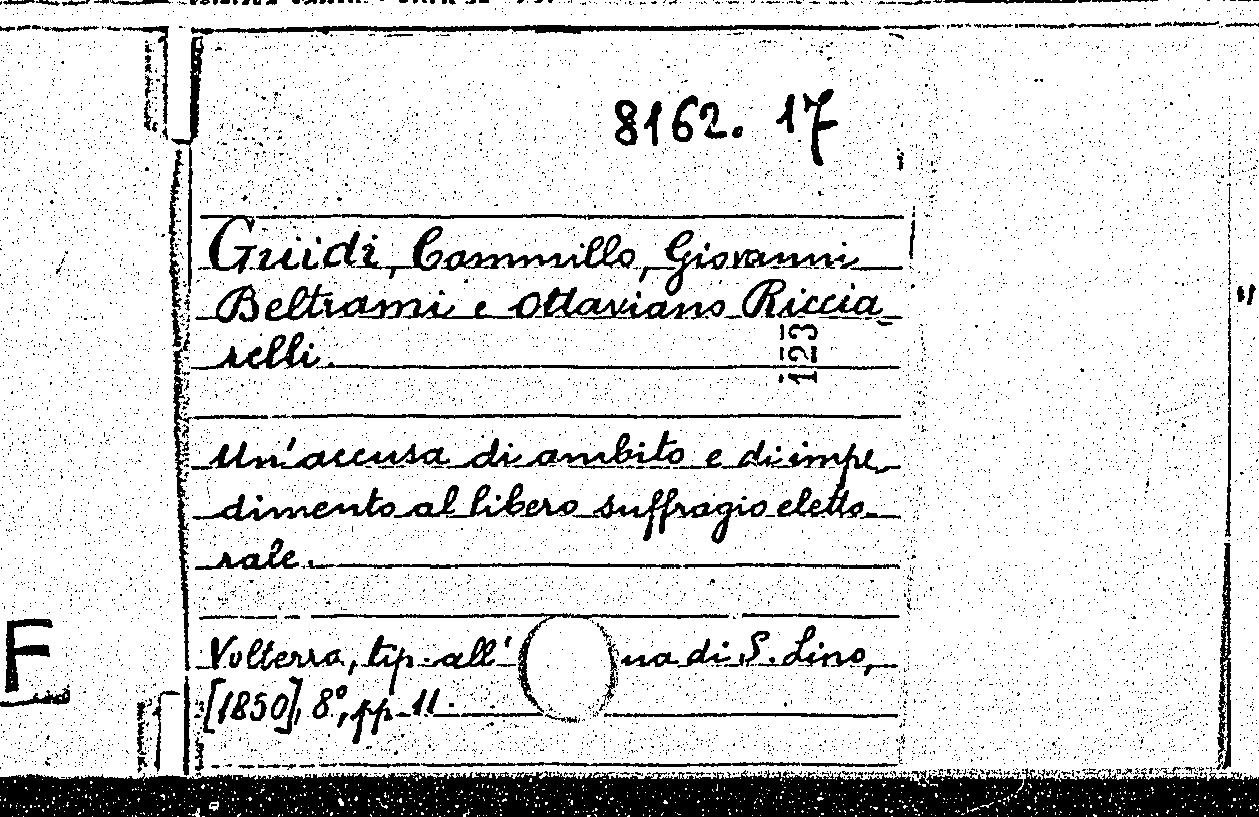 8162. 17
Guidi, Cammillo, Giovanni
Beltrami e Ottaviano Riccia_
relli.
123
Un'accusa di ambito e di impe_
dimento al libero suffragio eletto_
rale.
Volterra, tip. all' na di S. Lino,
[1850], 8°, pp. 11.
F